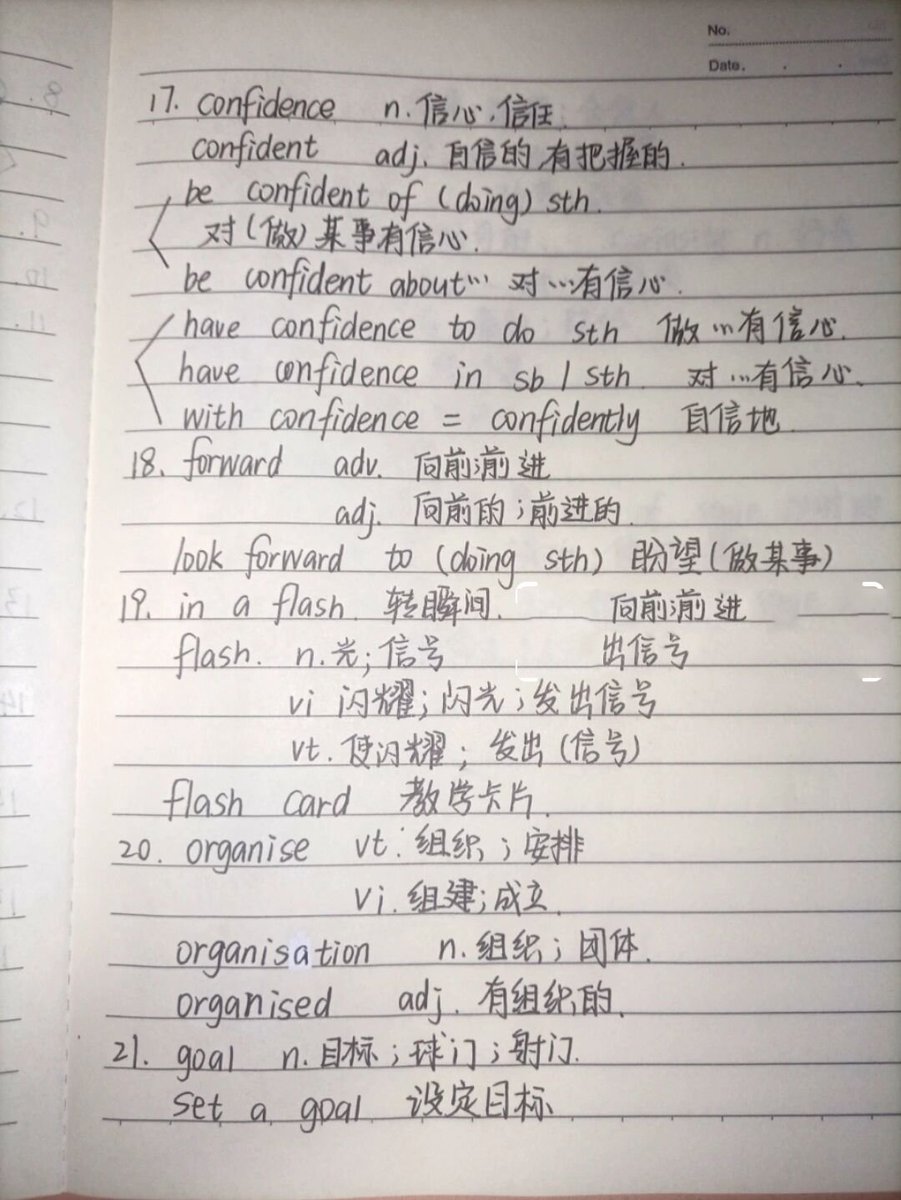 No.
Date.
17. confidence n. 信心,信任.
confident adj. 自信的,有把握的.
be confident of (doing) sth.
对(做)某事有信心.
be confident about… 对…有信心.
have confidence to do sth 做…有信心.
have confidence in sb / sth. 对…有信心.
with confidence = confidently 自信地.
18. forward adv. 向前;前进
adj. 向前的;前进的.
look forward to (doing sth) 盼望(做某事)
19. in a flash. 转瞬间. 向前;前进
flash. n. 光;信号 出信号
vi 闪耀;闪光;发出信号
vt. 使闪耀;发出(信号)
flash card 教学卡片.
20. organise vt. 组织;安排
vi. 组建;成立.
organisation n. 组织;团体.
organised adj. 有组织的.
21. goal n. 目标;球门;射门.
set a goal 设定目标.